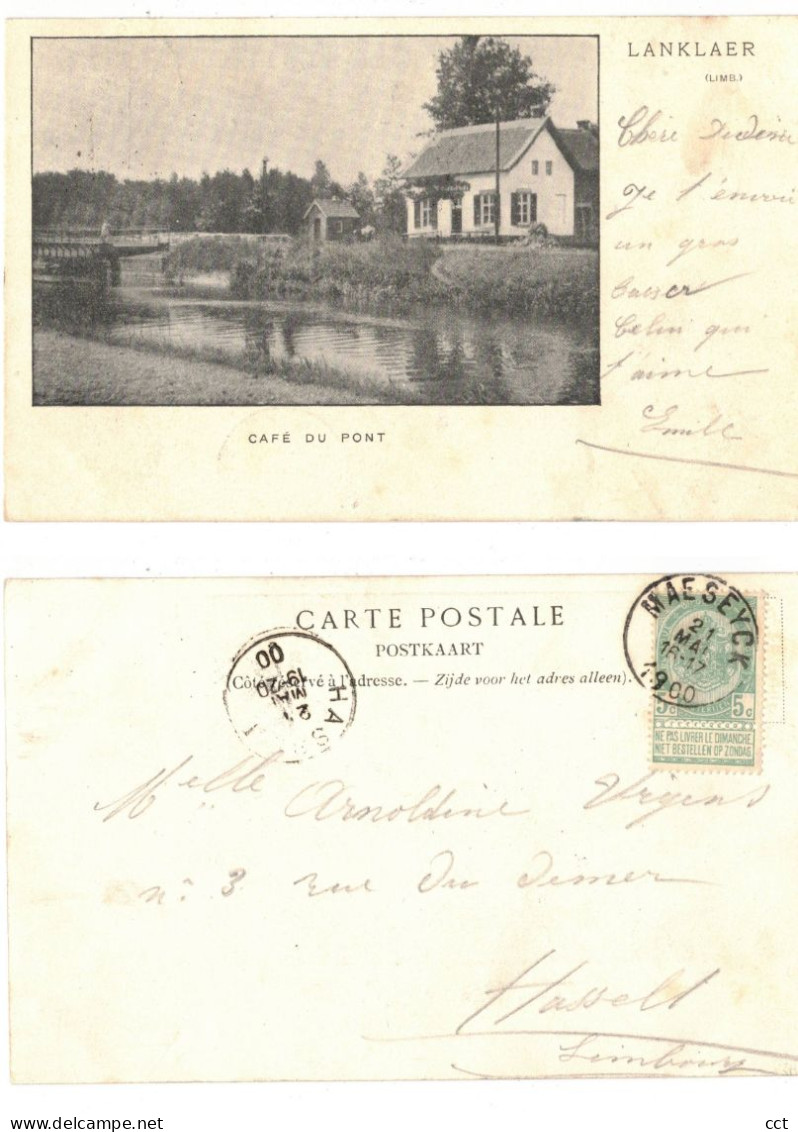 LANKLAER
(LIMB.)
Chère
Je t'envoie
un gros
baiser
Celui qui
t'aime
Emile
CAFÉ DU PONT
CARTE POSTALE
POSTKAART
Côté réservé à l'adresse. — Zijde voor het adres alleen).
MAESEYCK
21
MAI
16-17
1900
HASS
MAI
19-20
00
5c 5c
NE PAS LIVRER LE DIMANCHE
NIET BESTELLEN OP ZONDAG
Melle Arnoldine Urgens
n° 3 rue du Demer
Hasselt
Limbourg
delcampe.net
cct